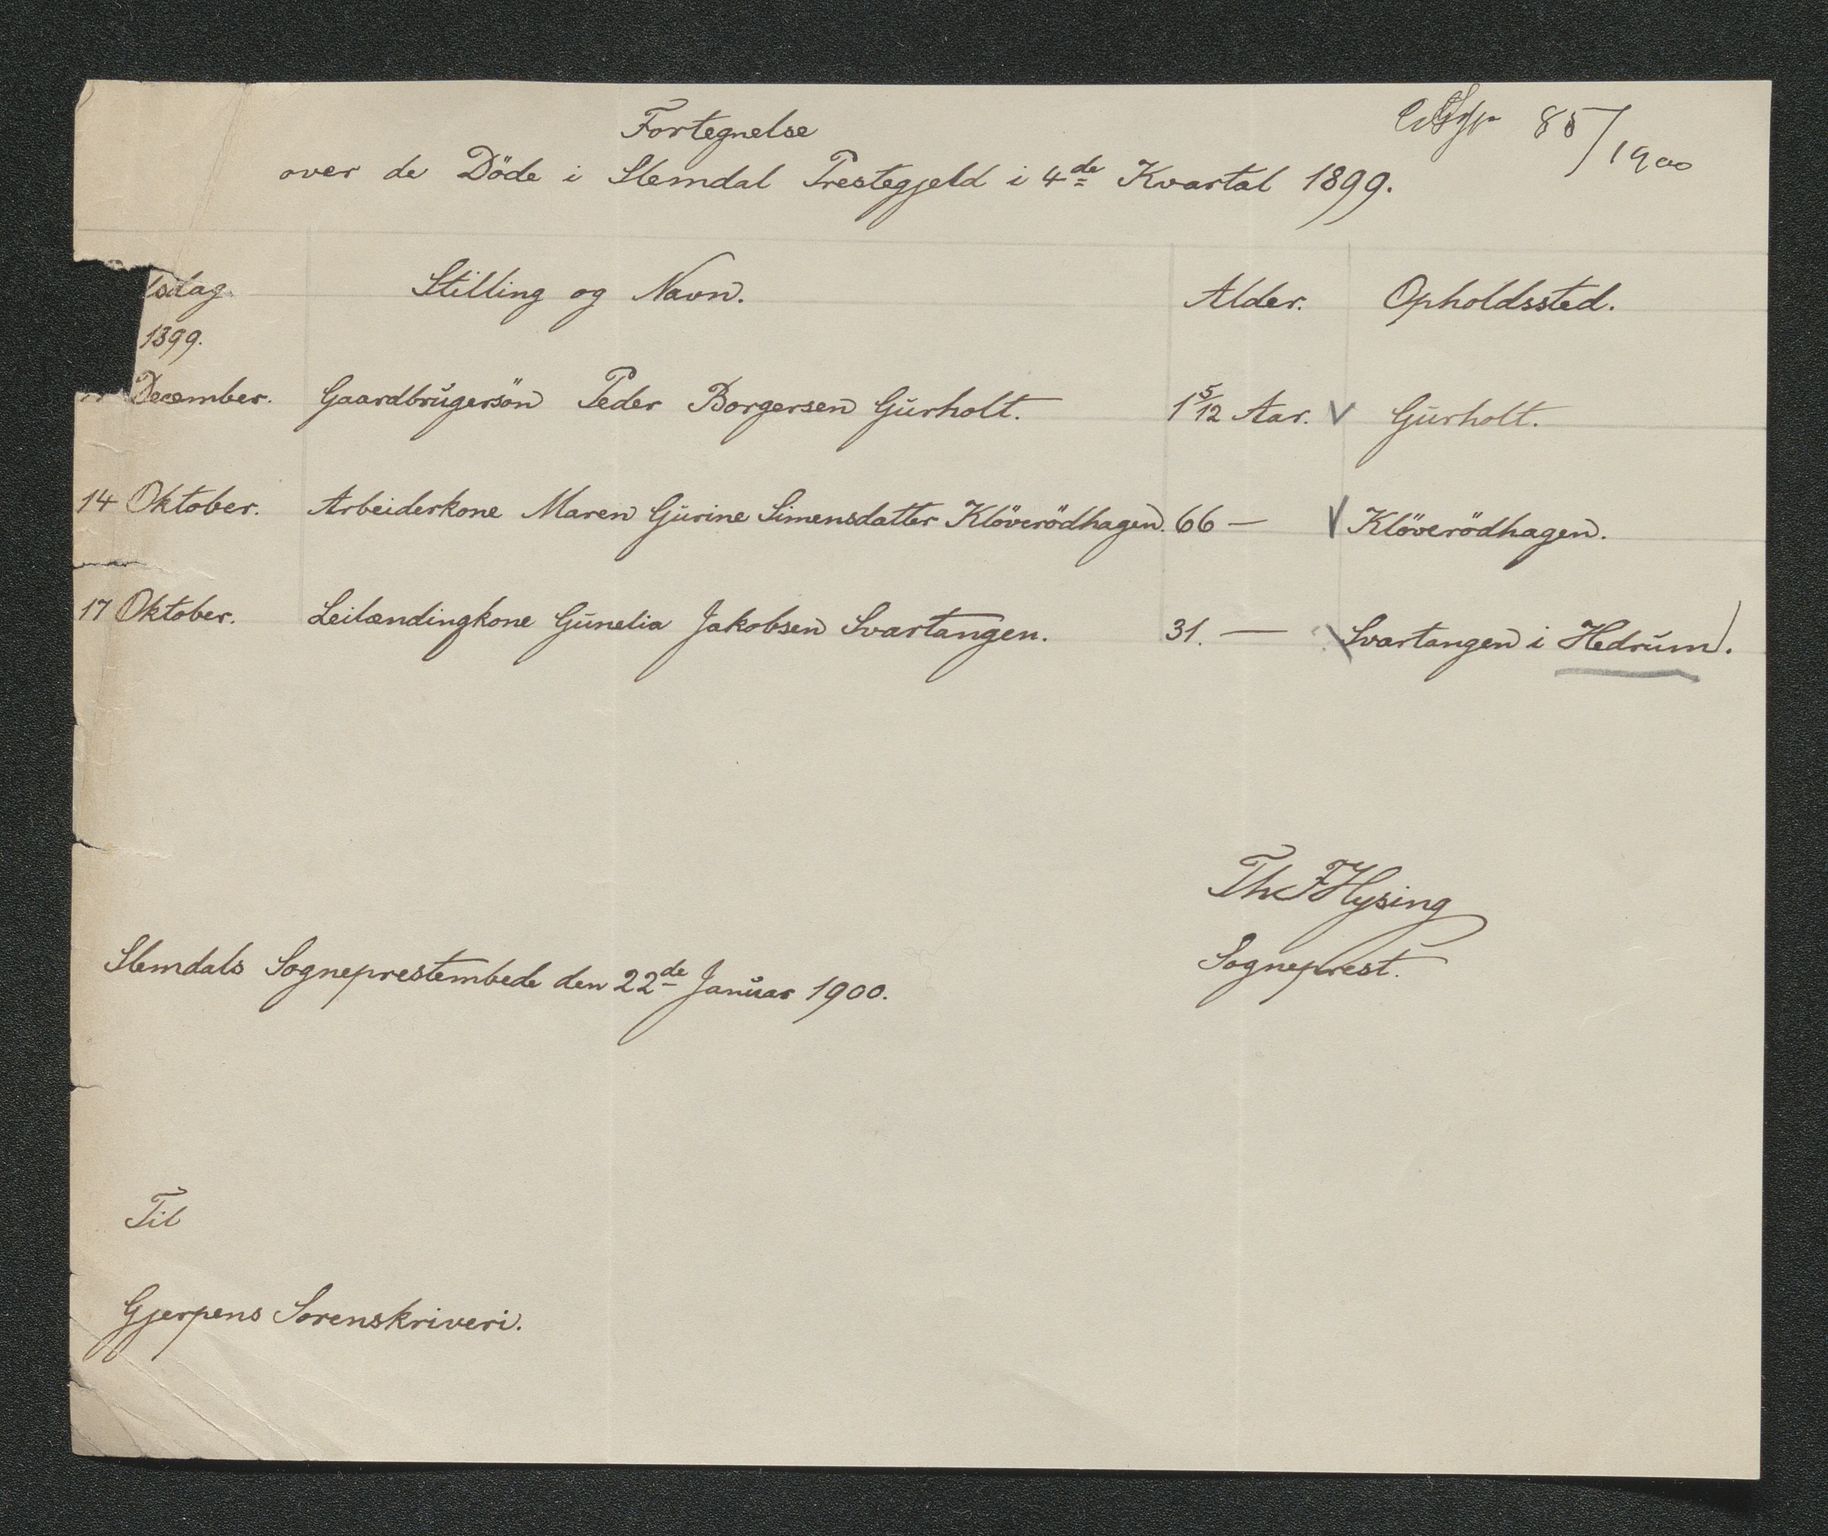 85/1900
Fortegnelse
over de Döde i Slemdal Prestegjeld i 4de Kvartal 1899.
lsdag Stilling og Navn. Alder. Opholdssted.
1899.
December. Gaardbrugersön Peder Borgersen Gurholt. 1 5/12 Aar. V Gurholt.
14 Oktober. Arbeiderkone Maren Gurine Simensdatter Klöverödhagen. 66 — V Klöverödhagen.
17 Oktober. Leilændingkone Gunelia Jakobsen Svartangen. 31. — Svartangen i Hedrum.
Th. F Hysing
Sogneprest.
Slemdals Sogneprestembede den 22de Januar 1900.
Til
Gjerpens Sorenskriveri.